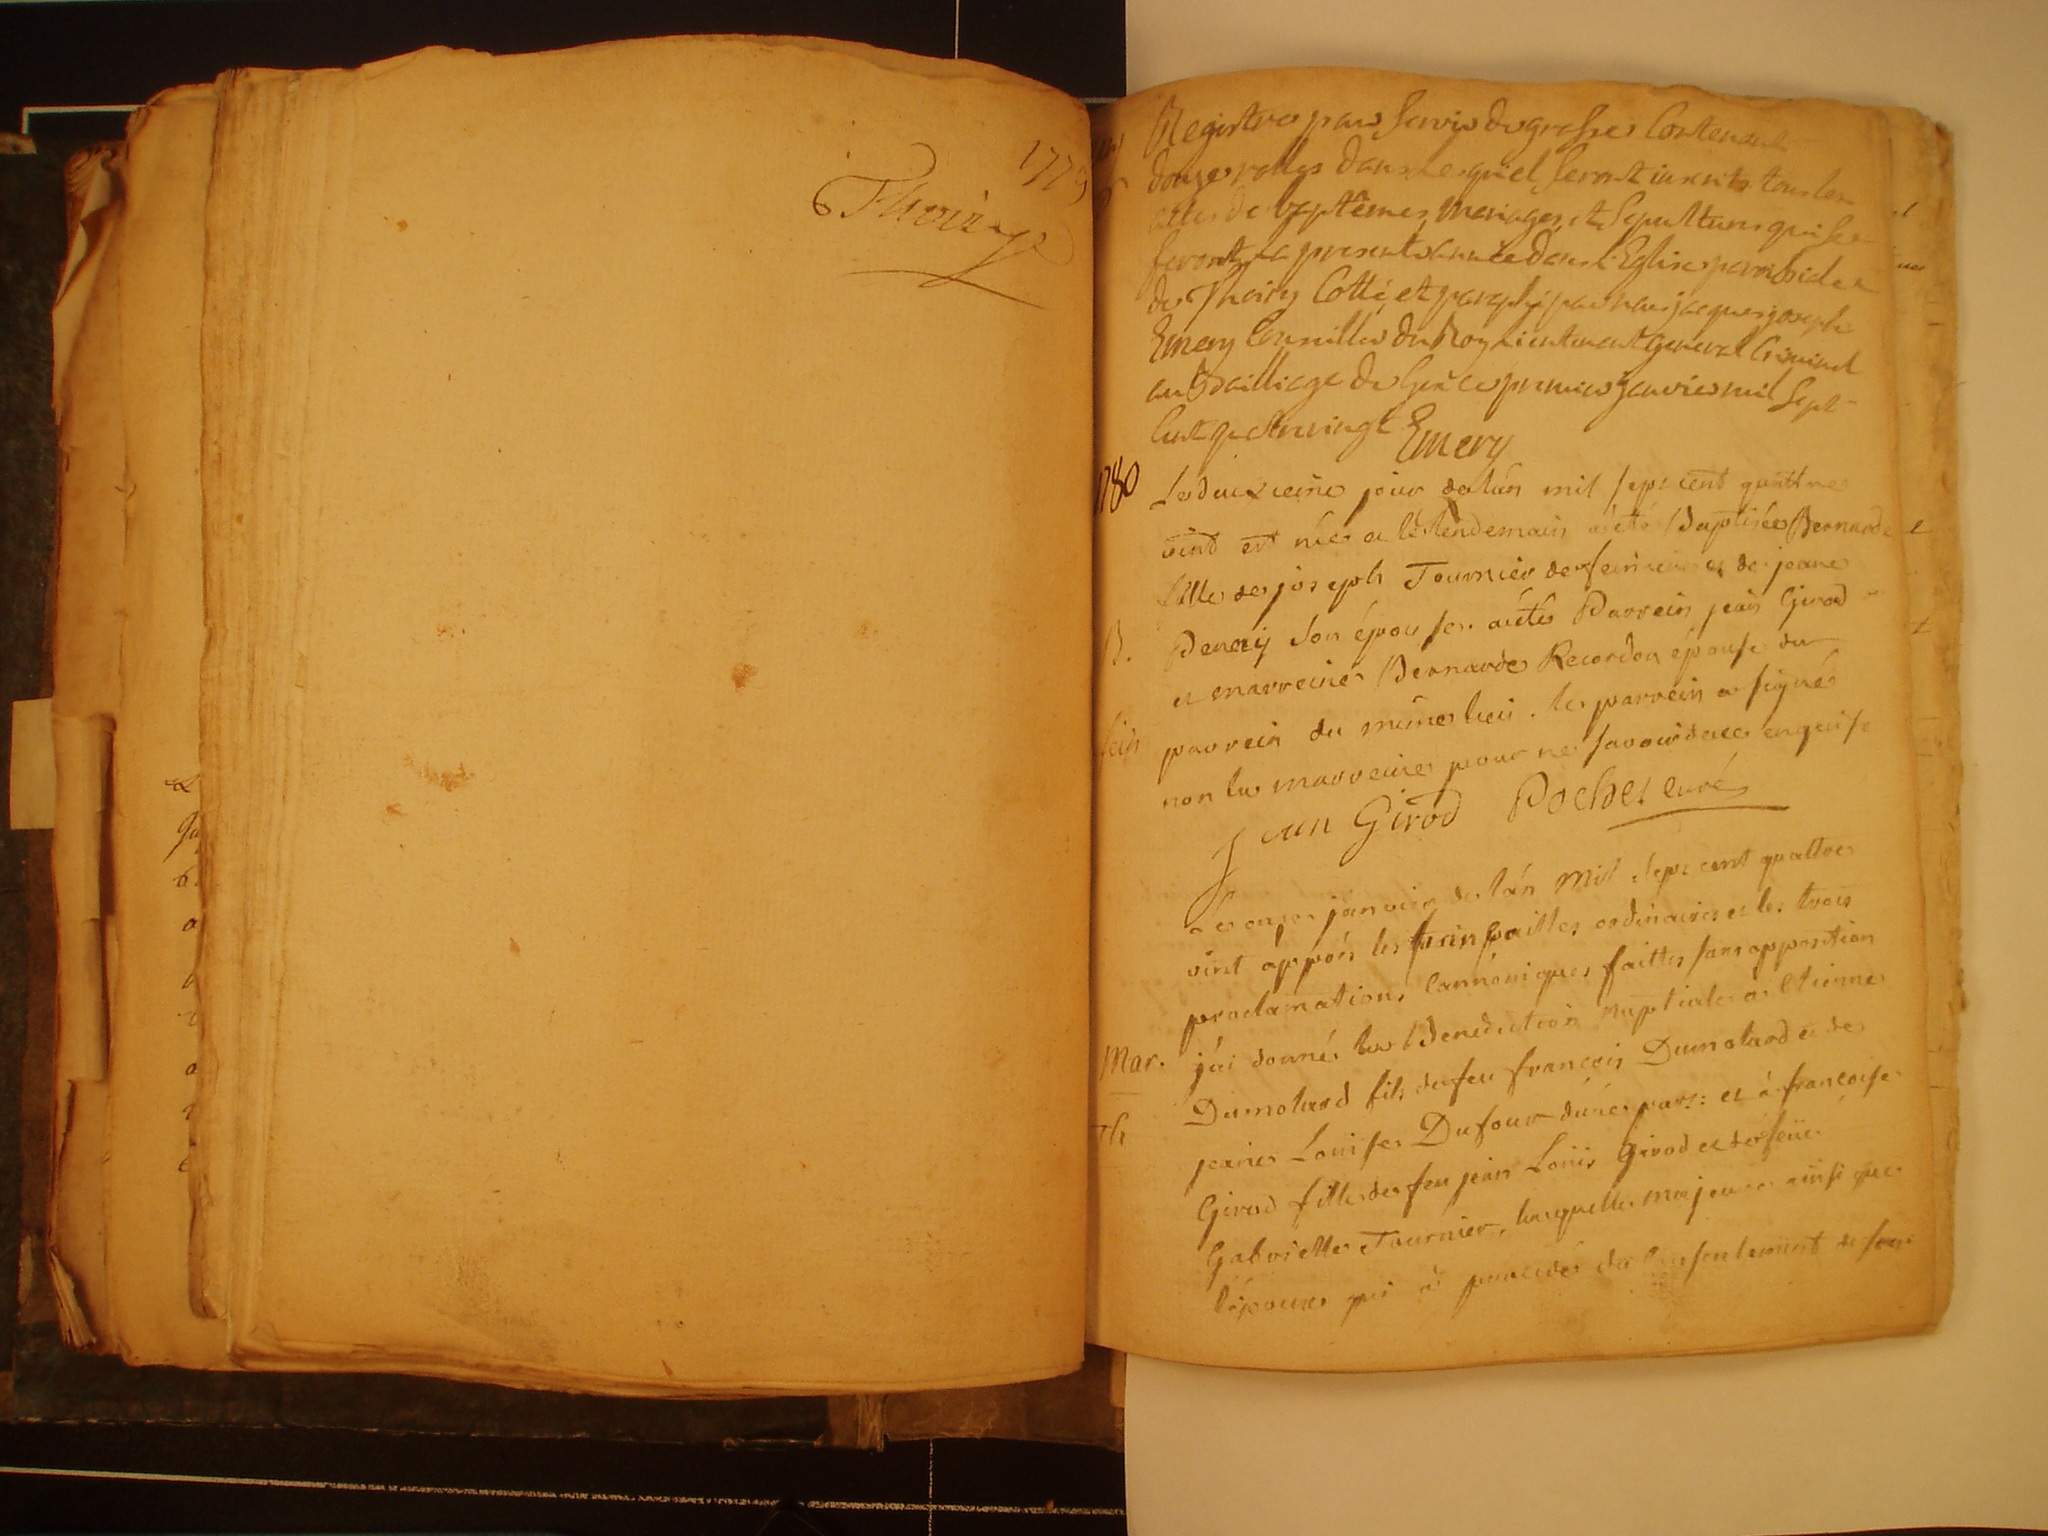 1779
Thoiry
Registre pour servir de grosse Contenant
douze rolles dans lesquel seront inscrits tous les
actes de baptêmes, Mariages, et Sepultures qui se
feront la presente année dans l'Eglise paroissiale
de Thoiry Cotté et paraphé par nous jacques joseph
Emery Conseiller du Roy Lieutenant general Criminel
au Bailliage de Gex le premier janvier mil Sept
Cent quatrevingt Emery
1780
Le deuxieme jour de lán mil sept cent quattre
vint est née et le lendemain a été Baptisée Bernarde
fille de joseph Tournier de et de jeane
son épouse. a étés Parrein jean Girod
et marreine Bernarde Recordon épouse du
parrein du même lieu. le parrein a signé
non la marreine pour ne savoir de ce enquise
B.
Jean Girod Pochet curé
Le onze janvier de lán Mil sept cent quattre
vint appres les fiancailles ordinaires et les trois
proclamations Cannoniques faittes sans opposition
j'ai donné la Benediction nuptiale a Etienne
Mar.
Dumolard fils de feu françois Dumolard et de
Th
jeane Louise Dufour d'une part: et à françoise
Girod fille de feu jean Loüis Girod et de feüe
Gabrielle Tournier, laquelle majeure ainsi que
l'époux qui à procedé du Consentement de